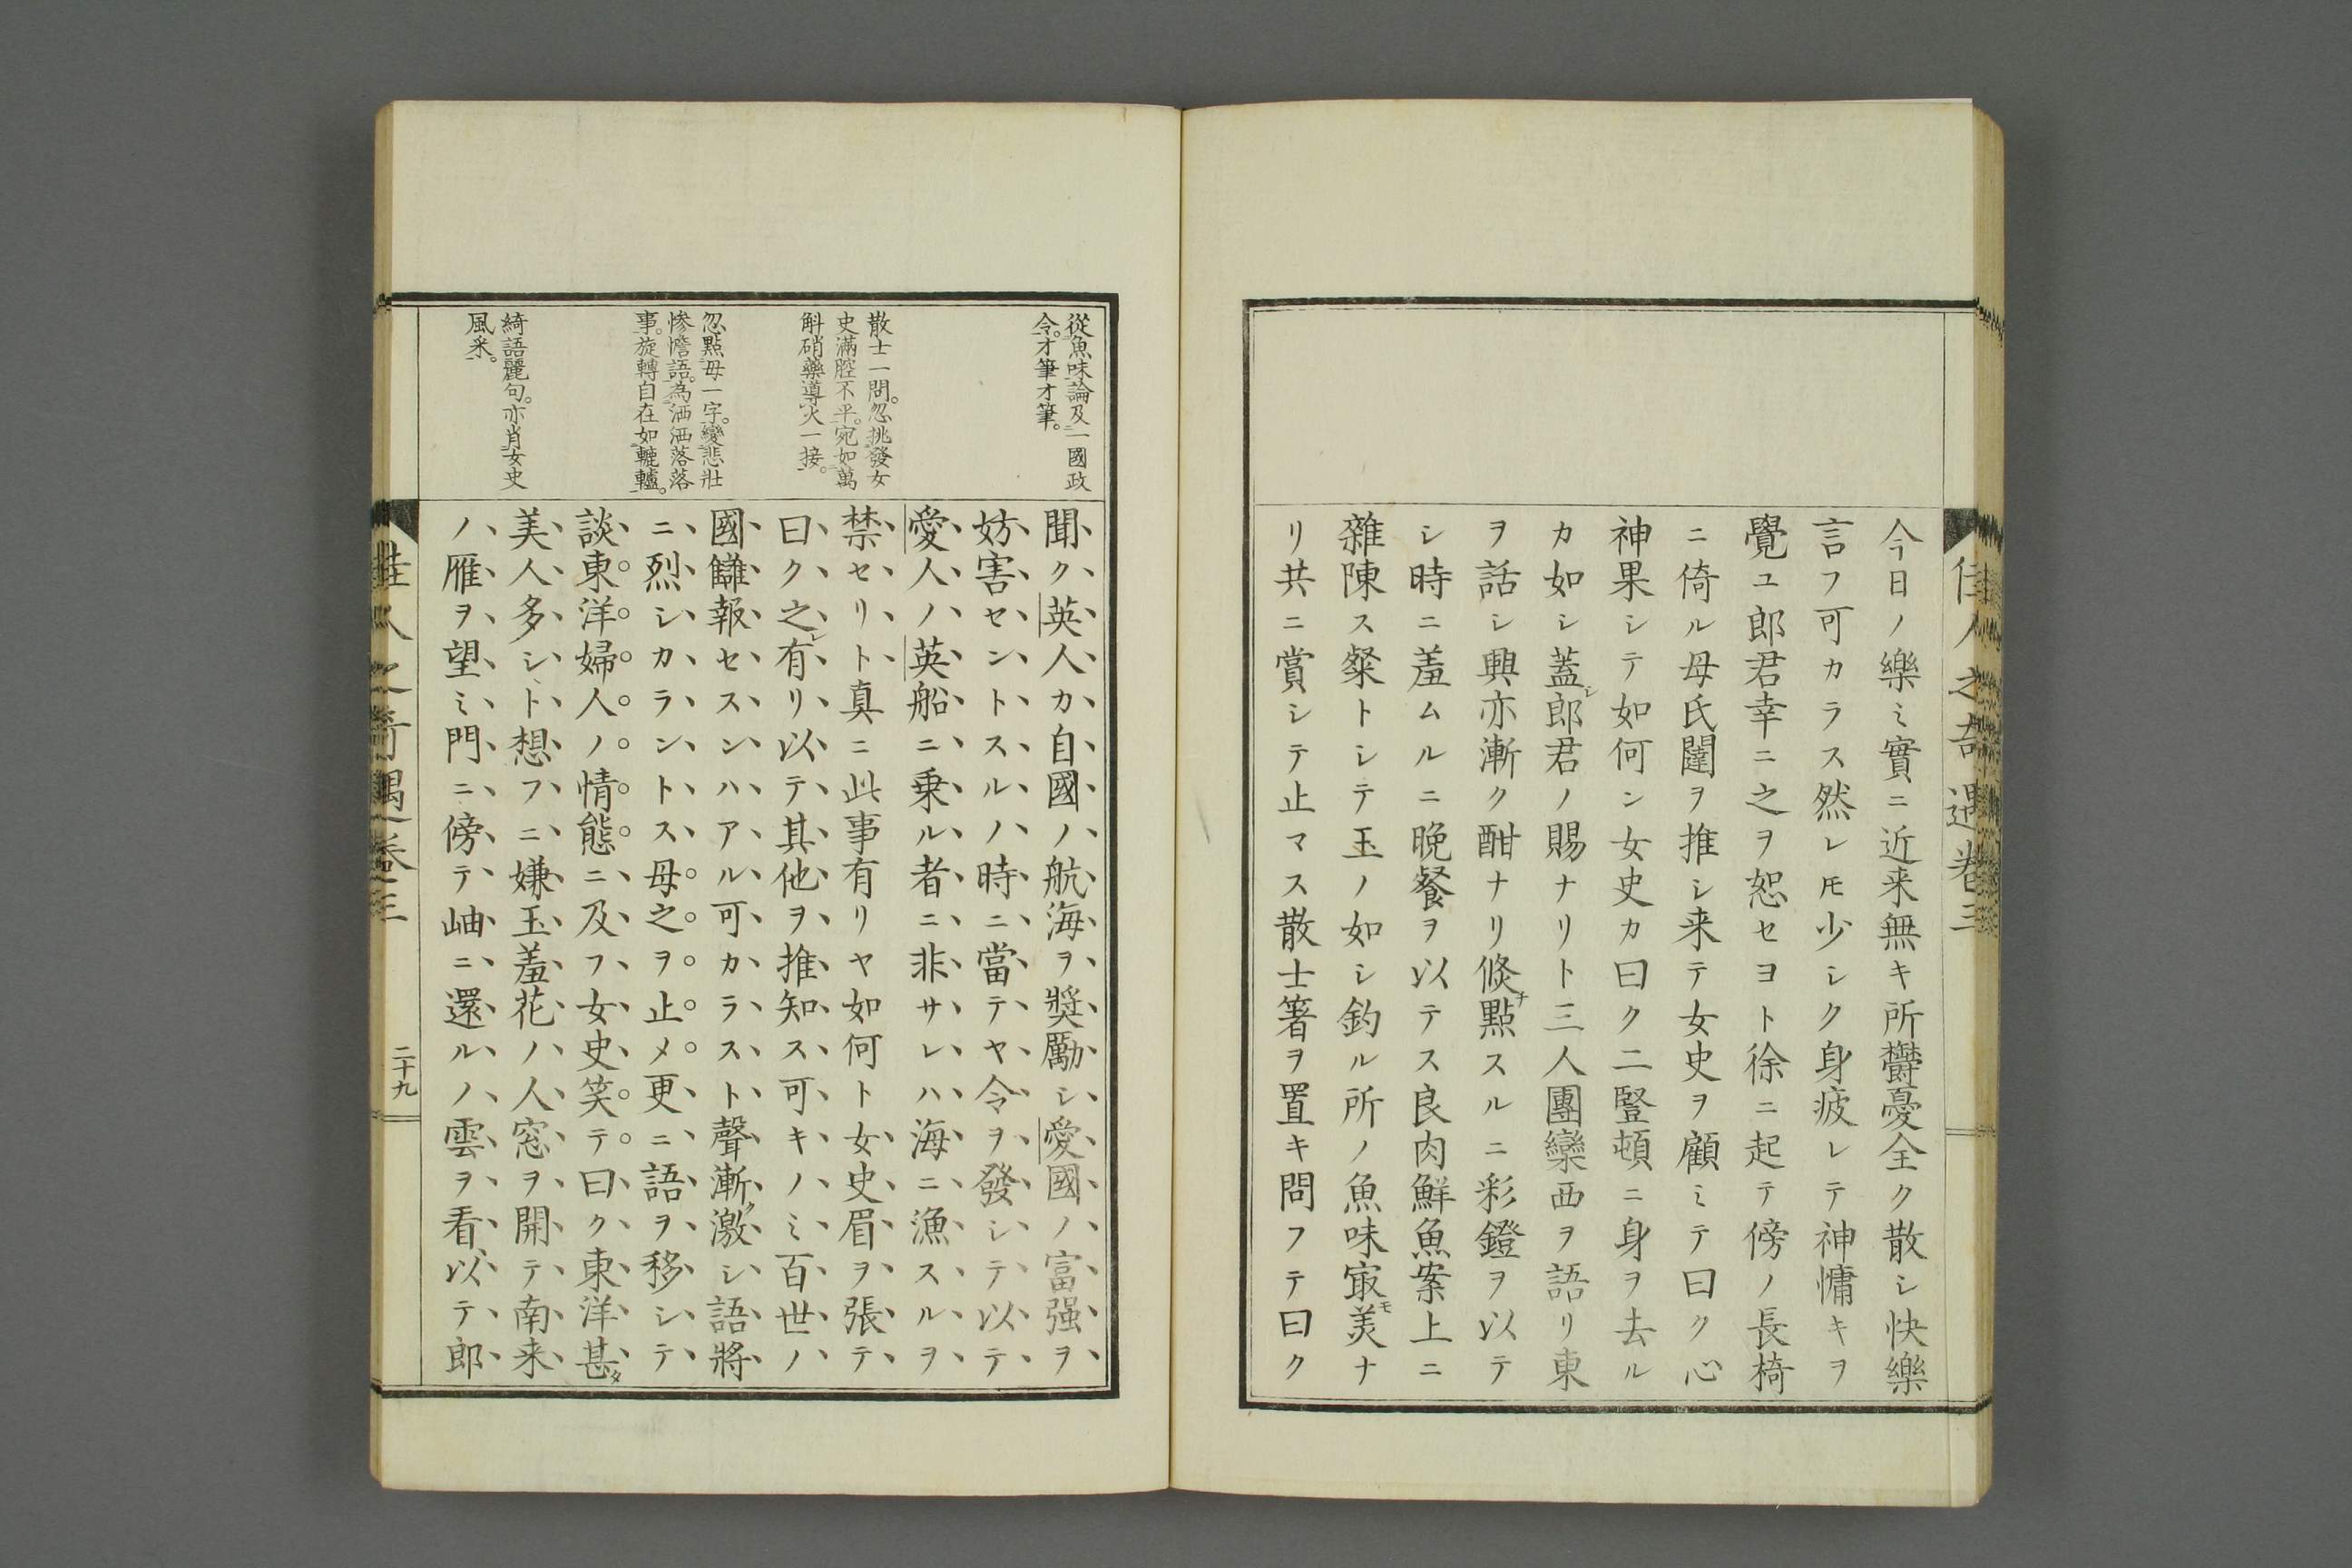 今日ノ樂ミ實ニ近来無キ所欝憂全ク散シ快樂
言フ可カラス然レ𪜈少シク身疲レテ神慵キヲ
覺ユ郎君幸ニ之ヲ恕セヨト徐ニ起テ傍ノ長椅
ニ倚ル母氏闥ヲ推シ来テ女史ヲ顧ミテ曰ク心
神果シテ如何ン女史カ曰ク二豎頓ニ身ヲ去ル
カ如シ蓋シ郎君ノ賜ナリト三人團欒西ヲ語リ東
ヲ話シ興亦漸ク酣ナリ倐チ點スルニ彩鐙ヲ以テ
シ時ニ羞ムルニ晩餐ヲ以テス良肉鮮魚案上ニ
雜陳ス粲トシテ玉ノ如シ釣ル所ノ魚味㝡モ美ナ
リ共ニ賞シテ止マス散士箸ヲ置キ問フテ曰ク
佳人之奇遇卷三
從魚味論及一國政
令。才筆才筆。
散士一問。忽挑發女
史滿腔不平。宛如萬
斛硝藥導火一接。
忽點母一字。變悲壯
慘憺語。為洒洒落落
事。旋轉自在如轆轤。
綺語麗句。亦肖女史
風釆。
聞ク英人カ自國ノ航海ヲ奬勵シ愛國ノ富强ヲ
妨害セントスルノ時ニ當テヤ令ヲ發シテ以テ
愛人ノ英船ニ乗ル者ニ非サレハ海ニ漁スルヲ
禁セリト真ニ此事有リヤ如何ト女史眉ヲ張テ
曰ク之レ有リ以テ其他ヲ推知ス可キノミ百世ノ
國讎報セスンハアル可カラスト聲漸ク激シ語將
ニ烈シカラントス母之ヲ止メ更ニ語ヲ移シテ
談東洋婦人ノ情態ニ及フ女史笑テ曰ク東洋甚タ
美人多シト想フニ嫌玉羞花ノ人窓ヲ開テ南来
ノ雁ヲ望ミ門ニ傍テ岫ニ還ルノ雲ヲ看以テ郎
佳人之奇遇卷三
二十九